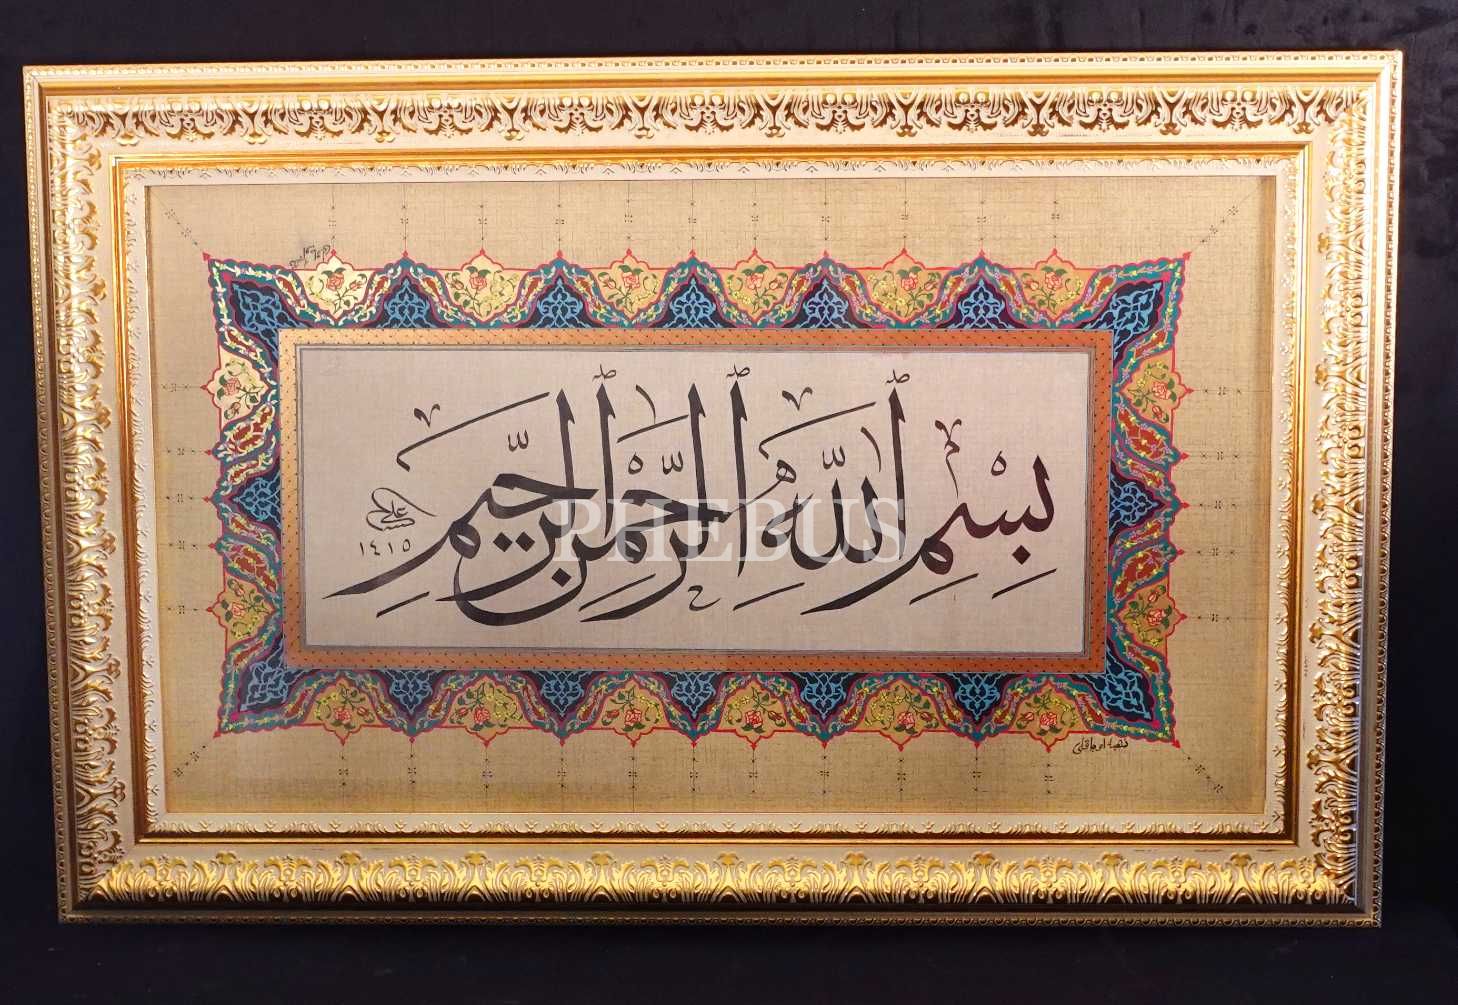 بِسْمِ ٱللَّهِ ٱلرَّحْمَٰنِ ٱلرَّحِيمِ
١٤١٥
PHEBUS